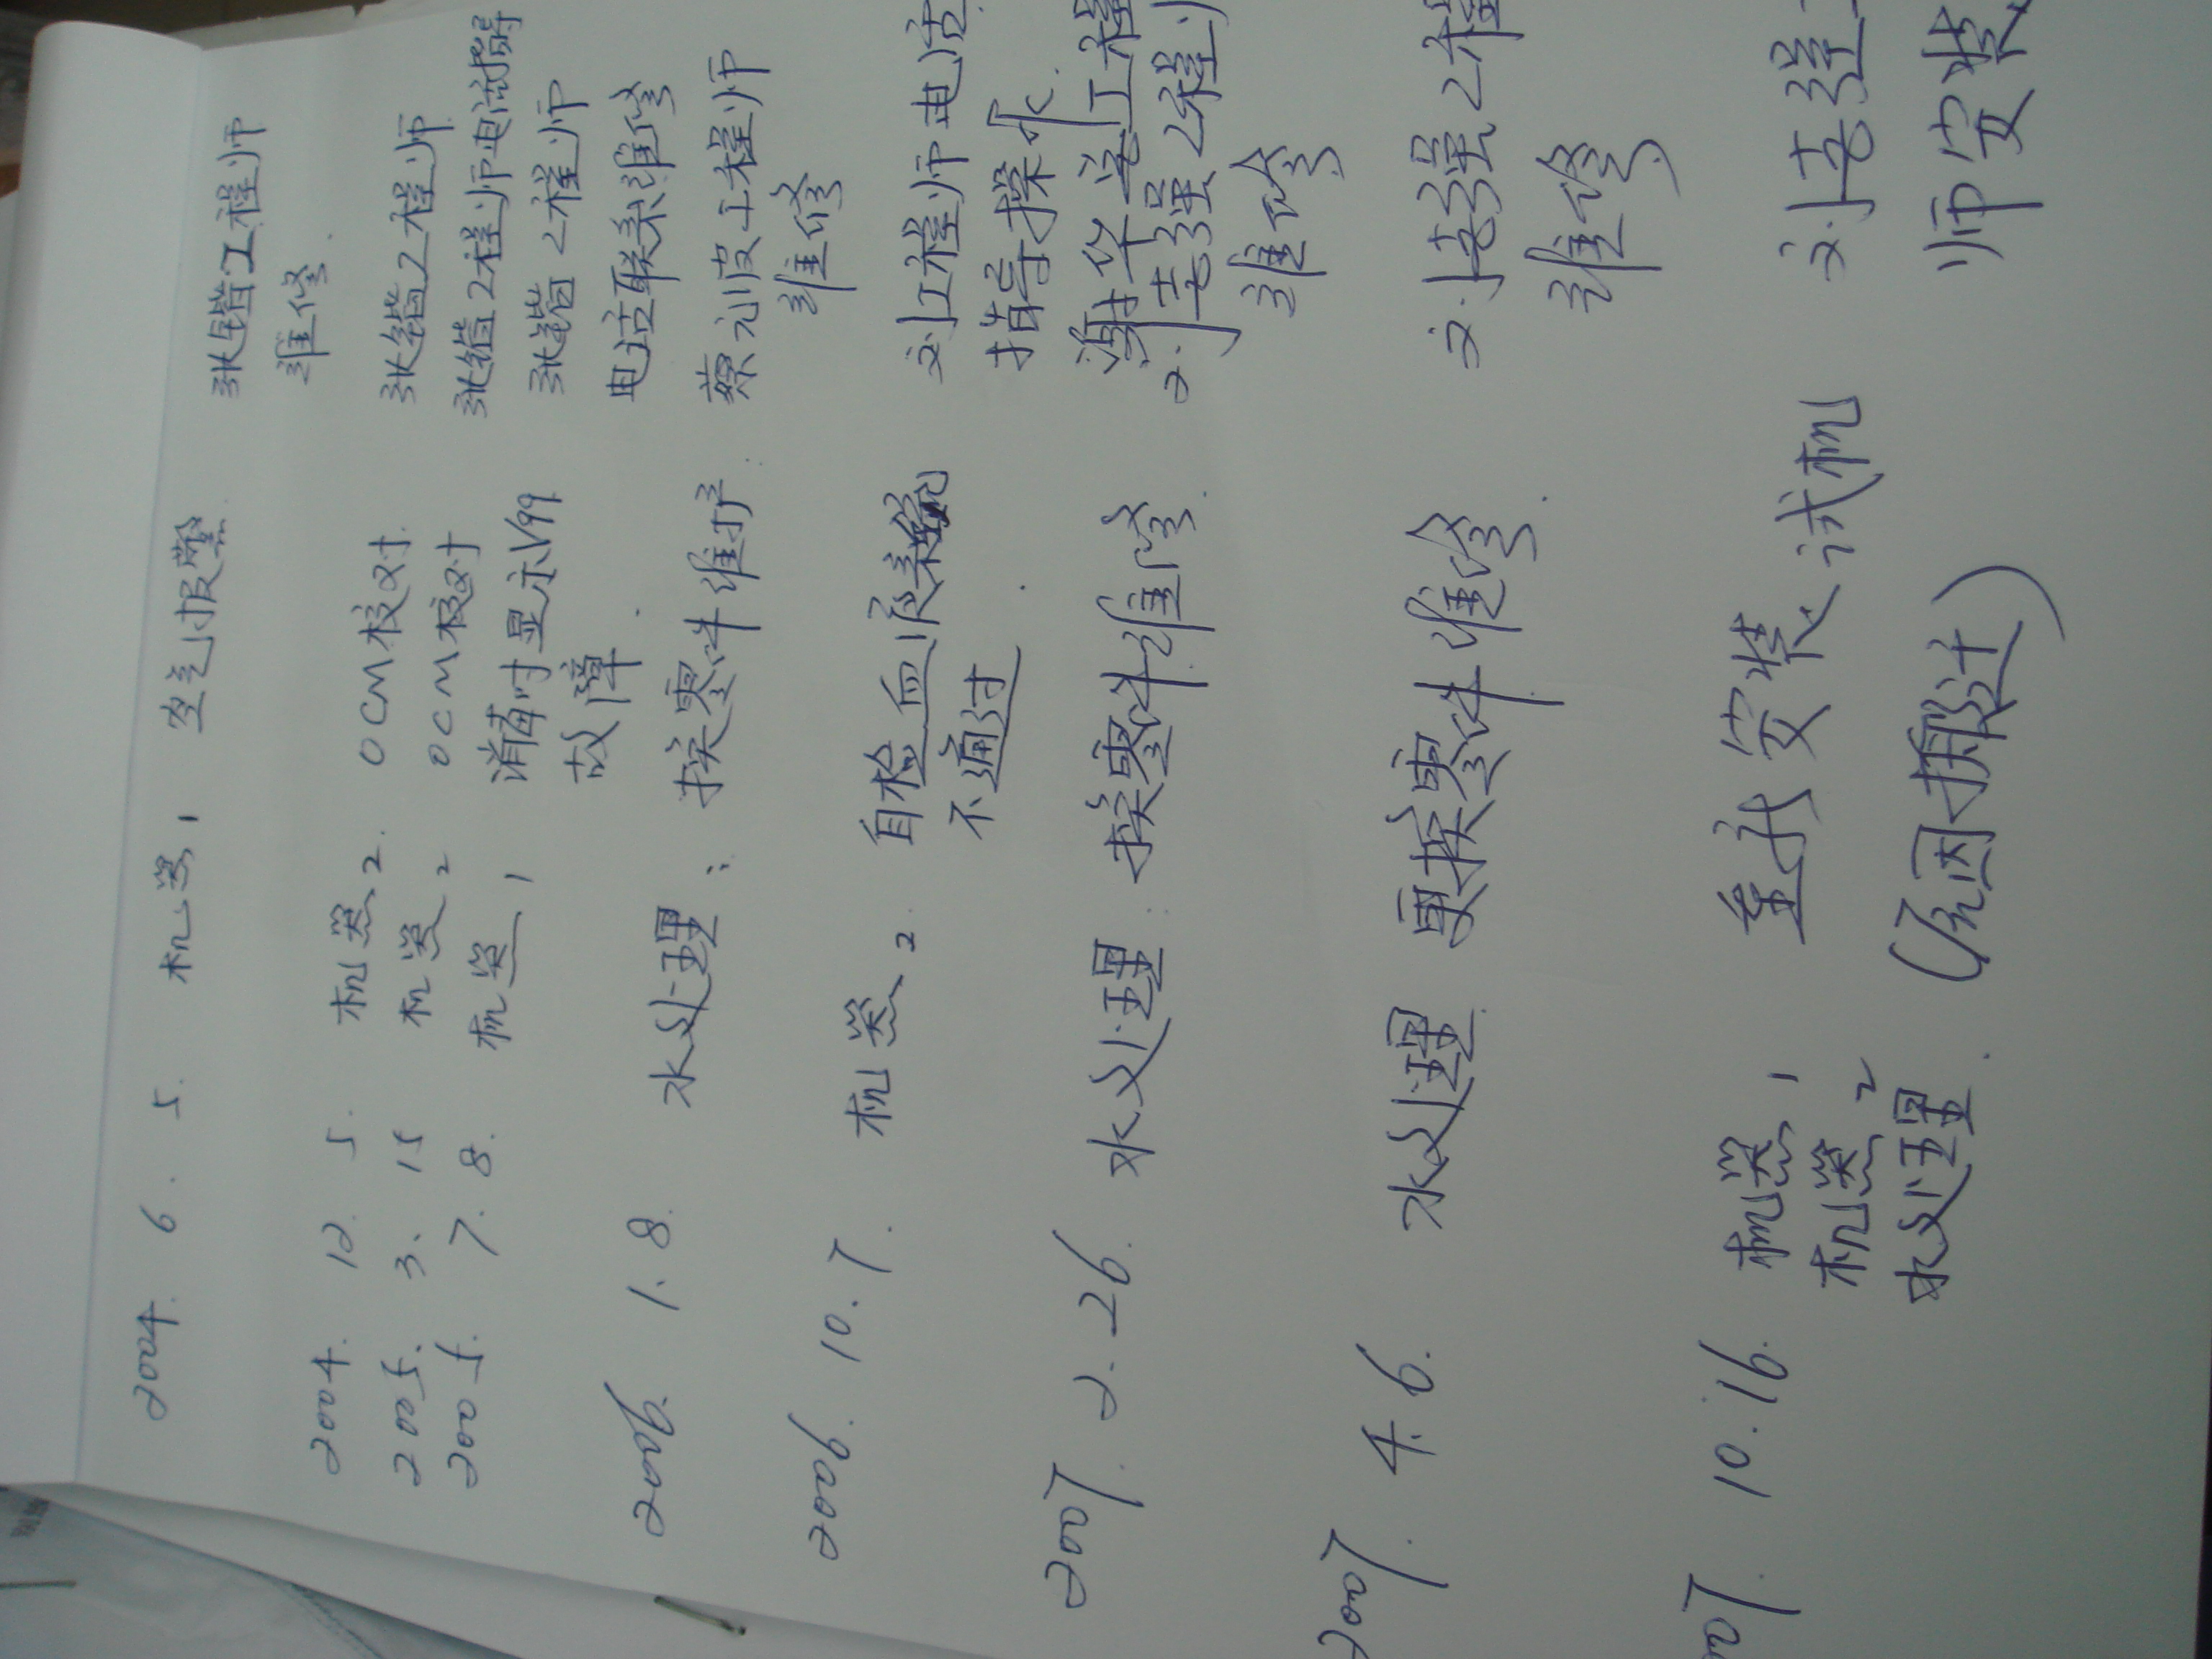 2004. 6. 5. 机器1 空气报警 张锴工程师
维修.
2004. 12. 5. 机器2. OCM校对 张锴工程师
2005. 3. 15 机器2 OCM校对 张锴工程师电话
2005. 7. 8. 机器1 消毒时显示V99 张锴工程师
故障. 电话联系维修
2006. 1. 8. 水处理: 换零件维护. 工程师
维修
2006. 10. 7. 机器2. 自检血液系统 刘工程师电
不通过. 指导操
2007. 2. 26. 水处理: 换零件维修. 工程
刘志强工程
维修
2007. 4. 6. 水处理 更换零件维修. 刘志强工程
维修
2007. 10. 16. 机器1 重新安装、试机 刘志强
机器2 (原因搬迁) 师安装
水处理.